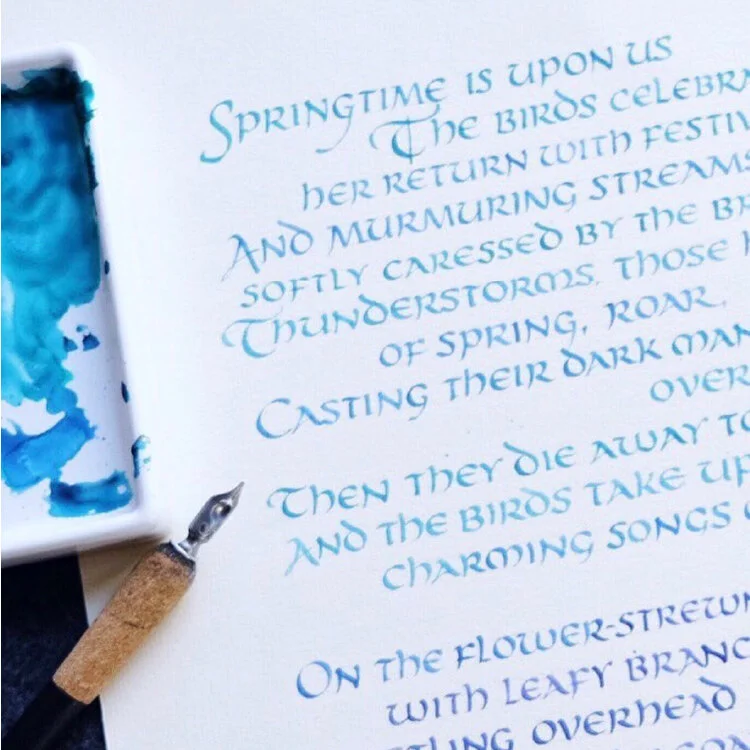 Springtime is upon us
The birds celebra
her return with festiv
And murmuring streams
softly caressed by the br
Thunderstorms, those h
of spring, roar,
Casting their dark man
over
Then they die away to
And the birds take up
charming songs
On the flower-strewn
with leafy branc
tling overhead